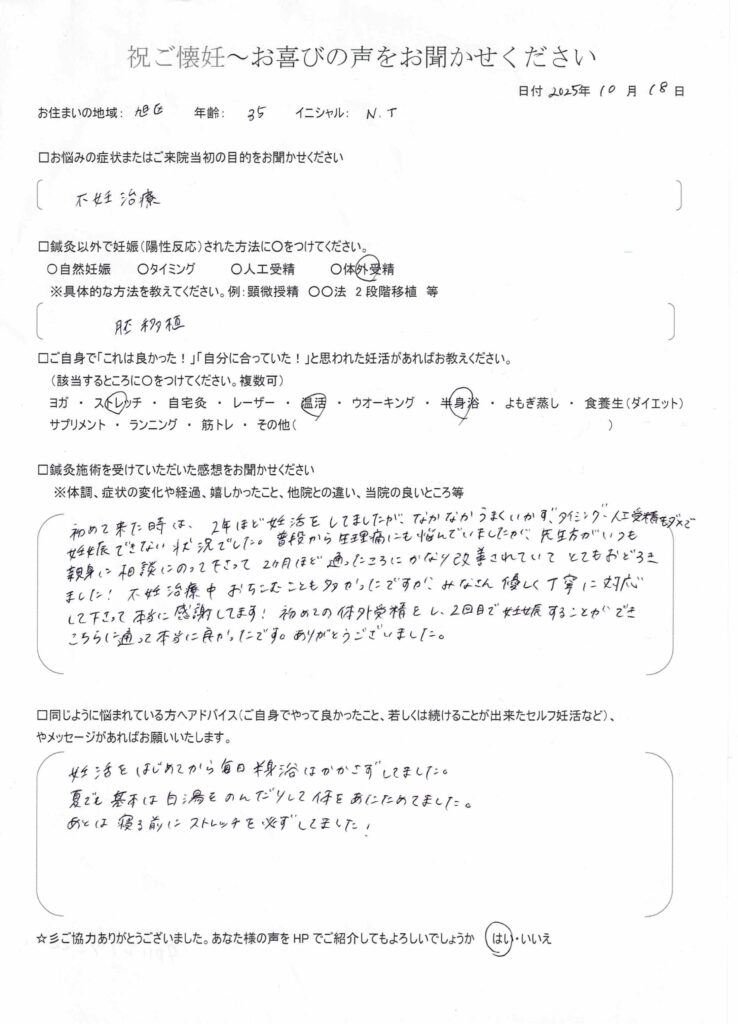 祝ご懐妊～お喜びの声をお聞かせください
日付 2025年 10 月 18 日
お住まいの地域： 旭区 年齢： 35 イニシャル： N.T
□お悩みの症状またはご来院当初の目的をお聞かせください
不妊治療
□鍼灸以外で妊娠（陽性反応）された方法に○をつけてください。
○自然妊娠 ○タイミング ○人工受精 ○体外受精
※具体的な方法を教えてください。例：顕微授精 ○○法 2段階移植 等
胚移植
□ご自身で「これは良かった！」「自分に合っていた！」と思われた妊活があればお教えください。
（該当するところに○をつけてください。複数可）
ヨガ ・ ストレッチ ・ 自宅灸 ・ レーザー ・ 温活 ・ ウオーキング ・ 半身浴 ・ よもぎ蒸し ・ 食養生（ダイエット）
サプリメント ・ ランニング ・ 筋トレ ・ その他（ ）
□鍼灸施術を受けていただいた感想をお聞かせください
※体調、症状の変化や経過、嬉しかったこと、他院との違い、当院の良いところ等
初めて来た時は、2年ほど妊活をしてましたが、なかなかうまくいかず、タイミング、人工受精もダメで
妊娠できない状況でした。普段から生理痛にも悩んでいましたが、先生方がいつも
親身に相談にのって下さって2ヶ月ほど通ったころにかなり改善されていてとてもおどろき
ました！不妊治療中おちこむことも多かったですが、みなさん優しく丁寧に対応
して下さって本当に感謝してます！初めての体外受精をし、2回目で妊娠することができ
こちらに通って本当に良かったです。ありがとうございました。
□同じように悩まれている方へアドバイス（ご自身でやって良かったこと、若しくは続けることが出来たセルフ妊活など）、
やメッセージがあればお願いいたします。
妊活をはじめてから毎日半身浴はかかさずしてました。
夏でも基本は白湯をのんだりして体をあたためてました。
あとは寝る前にストレッチを必ずしてました！
☆彡ご協力ありがとうございました。あなた様の声をHPでご紹介してもよろしいでしょうか はい・いいえ